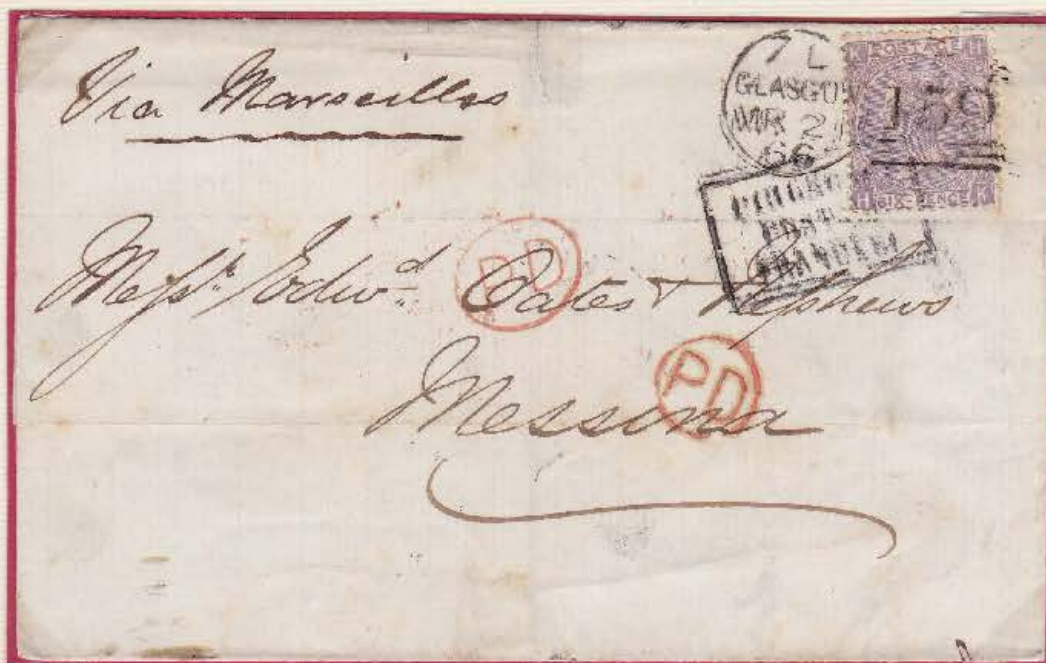 Via Marseilles
7 L
GLASGOW
MR 2
66
POSTAGE
159
SIX-PENCE
PD
Messrs Edwd Oates & Nephews
PD
Messina